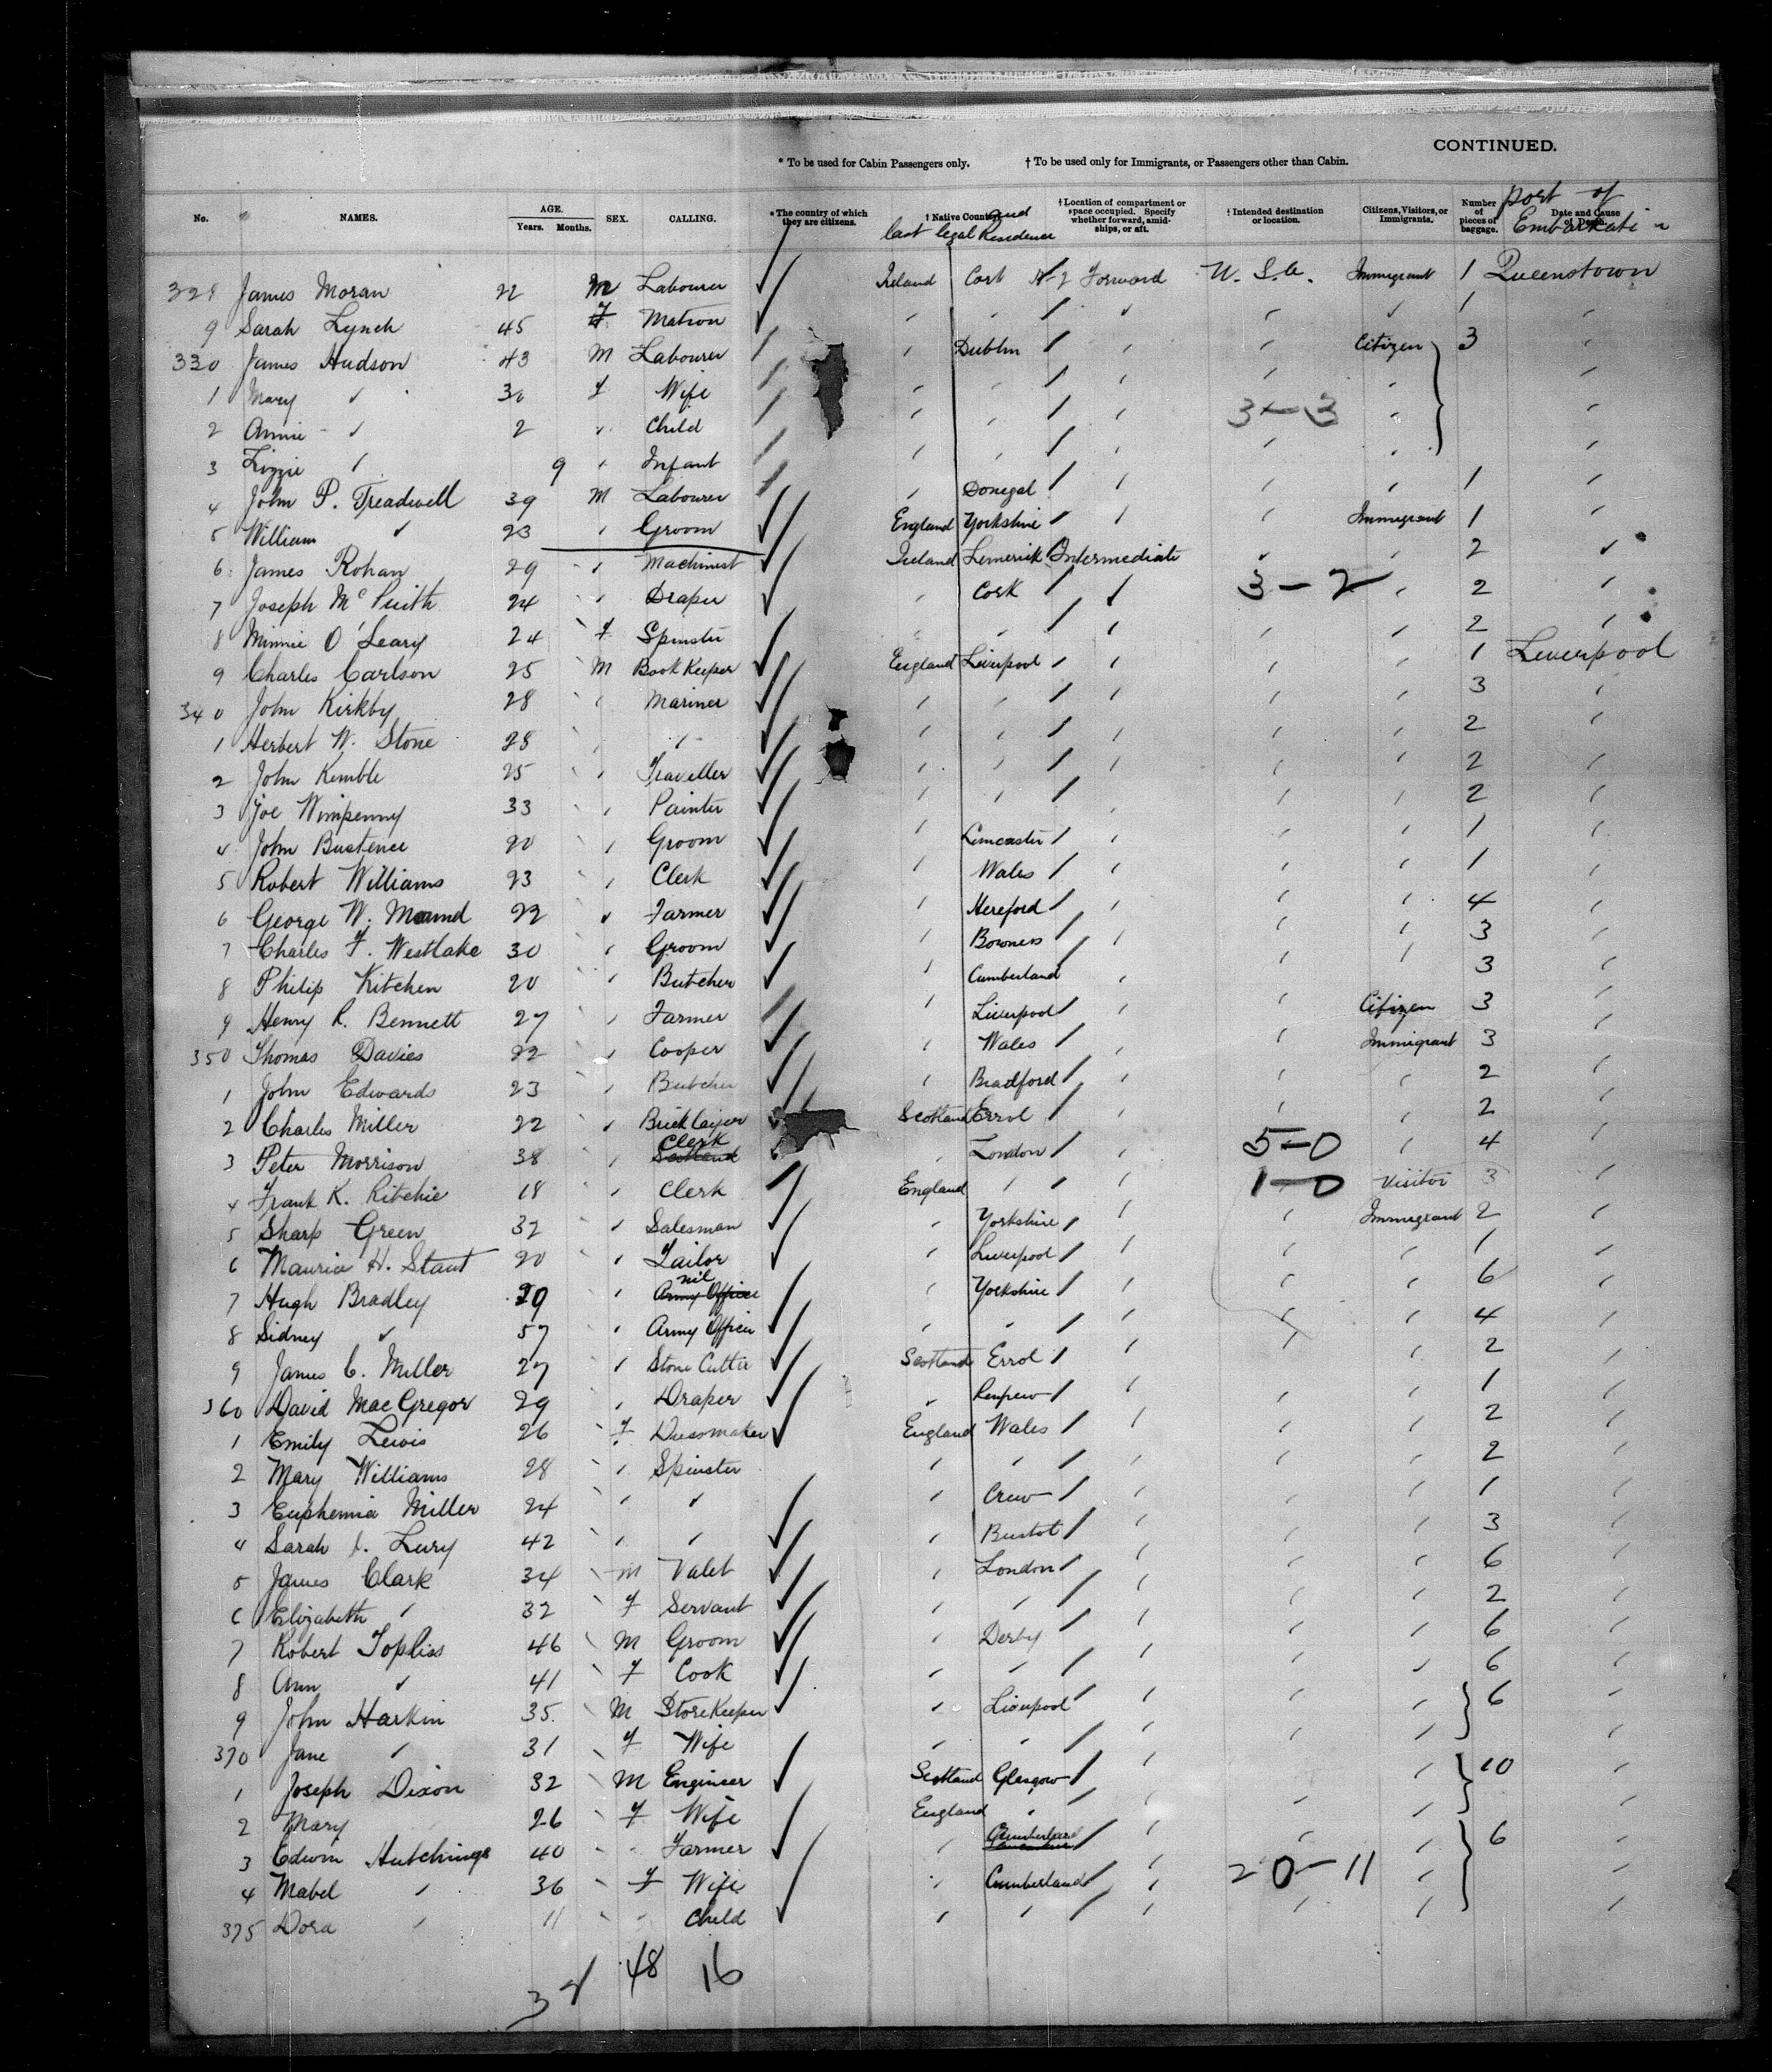 CONTINUED.
* To be used for Cabin Passengers only. † To be used only for Immigrants, or Passengers other than Cabin.
No. NAMES. AGE. Years. Months. SEX. CALLING. * The country of which they are citizens. † Native Country and last legal Residence † Location of compartment or space occupied. Specify whether forward, amidships, or aft. † Intended destination or location. Citizens, Visitors, or Immigrants. Number of pieces of baggage. Date and Cause of Death. port of Embarkation
328 James Moran 22 M Labourer Ireland Cork Forward U.S.A. Immigrant 1 Queenstown
9 Sarah Lynch 45 F Matron " " " " " 1 "
330 James Hudson 43 M Labourer " Dublin " " Citizen 3 "
1 Mary " 30 F Wife " " " " " "
2 Annie " 2 " Child " " " 3-3 " "
3 Lizzie " 9 " Infant " " " " " "
4 John P. Treadwell 39 M Labourer " Donegal " " " 1 "
5 William " 23 " Groom England Yorkshire " " Immigrant 1 "
6 James Rohan 29 " Machinist Ireland Limerick Intermediate " " 2 "
7 Joseph 24 " Draper " Cork " 3-2 " 2 "
8 Minnie O'Leary 24 F Spinster " " " " " 2 "
9 Charles Carlson 25 M Book Keeper England Liverpool " " " 1 Liverpool
340 John Kirkby 28 " Mariner " " " " " 3 "
1 Herbert W. Stone 28 " " " " " " " 2 "
2 John Kemble 25 " Traveller " " " " " 2 "
3 Joe Wimpenny 33 " Painter " " " " " 2 "
4 John 20 " Groom " " " " 1 "
5 Robert Williams 23 " Clerk " Wales " " " 1 "
6 George W. Mound 22 " Farmer " Hereford " " " 4 "
7 Charles F. Westlake 30 " Groom " Bowness " " " 3 "
8 Philip Kitchen 20 " Butcher " Cumberland " " " 3 "
9 Henry R. Bennett 27 " Farmer " Liverpool " " Citizen 3 "
350 Thomas Davies 22 " Cooper " Wales " " Immigrant 3 "
1 John Edwards 23 " Butcher " Bradford " " " 2 "
2 Charles Miller 22 " Bricklayer Scotland Errol " " " 2 "
3 Peter Morrison 38 " Clerk " London " 5-0 " 4 "
4 Frank K. Ritchie 18 " Clerk England " " 1-0 Visitor 3 "
5 Sharp Green 32 " Salesman " Yorkshire " " Immigrant 2 "
6 Maurice H. Staut 20 " Tailor " Liverpool " " " 1 "
7 Hugh Bradley 29 " nil " Yorkshire " " " 6 "
8 Sidney " 57 " Army Officer " " " " " 4 "
9 James C. Miller 27 " Stone Cutter Scotland Errol " " " 2 "
360 David MacGregor 29 " Draper " Renfrew " " " 1 "
1 Emily Lewis 26 F Dressmaker England Wales " " " 2 "
2 Mary Williams 28 " Spinster " " " " " 2 "
3 Euphemia Miller 24 " " " Crew " " " 1 "
4 Sarah 42 " " " Bristol " " " 3 "
5 James Clark 34 M Valet " London " " " 6 "
6 Elizabeth " 32 F Servant " " " " " 2 "
7 Robert Topliss 46 M Groom " Derby " " " 6 "
8 Ann " 41 F Cook " " " " " 6 "
9 John Harkin 35 M StoreKeeper " Liverpool " " " 6 "
370 Jane " 31 F Wife " " " " " "
1 Joseph Dixon 32 M Engineer Scotland Glasgow " " " 10 "
2 Mary 26 F Wife England " " " " "
3 Edwin Hutchings 40 " Farmer " Cumberland " " " 6 "
4 Mabel " 36 F Wife " Cumberland " 20-11 " "
375 Dora " 11 " Child " " " " " "
48 16